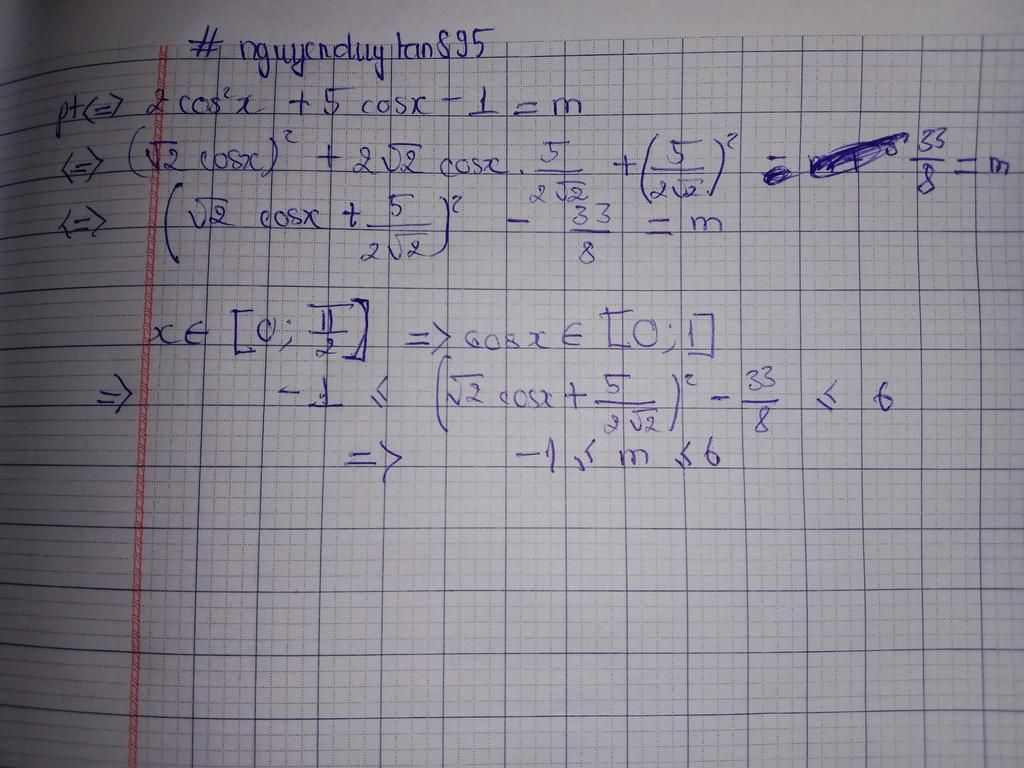 # nguyenduytan895
pt <=> 2 cos²x + 5 cosx - 1 = m
<=> (√2 cosx)² + 2√2 cosx . 5/(2√2) + (5/(2√2))² - 33/8 = m
<=> (√2 cosx + 5/(2√2))² - 33/8 = m
x ∈ [0; π/2] => cosx ∈ [0; 1]
=> -1 ≤ (√2 cosx + 5/(2√2))² - 33/8 ≤ 6
=> -1 ≤ m ≤ 6